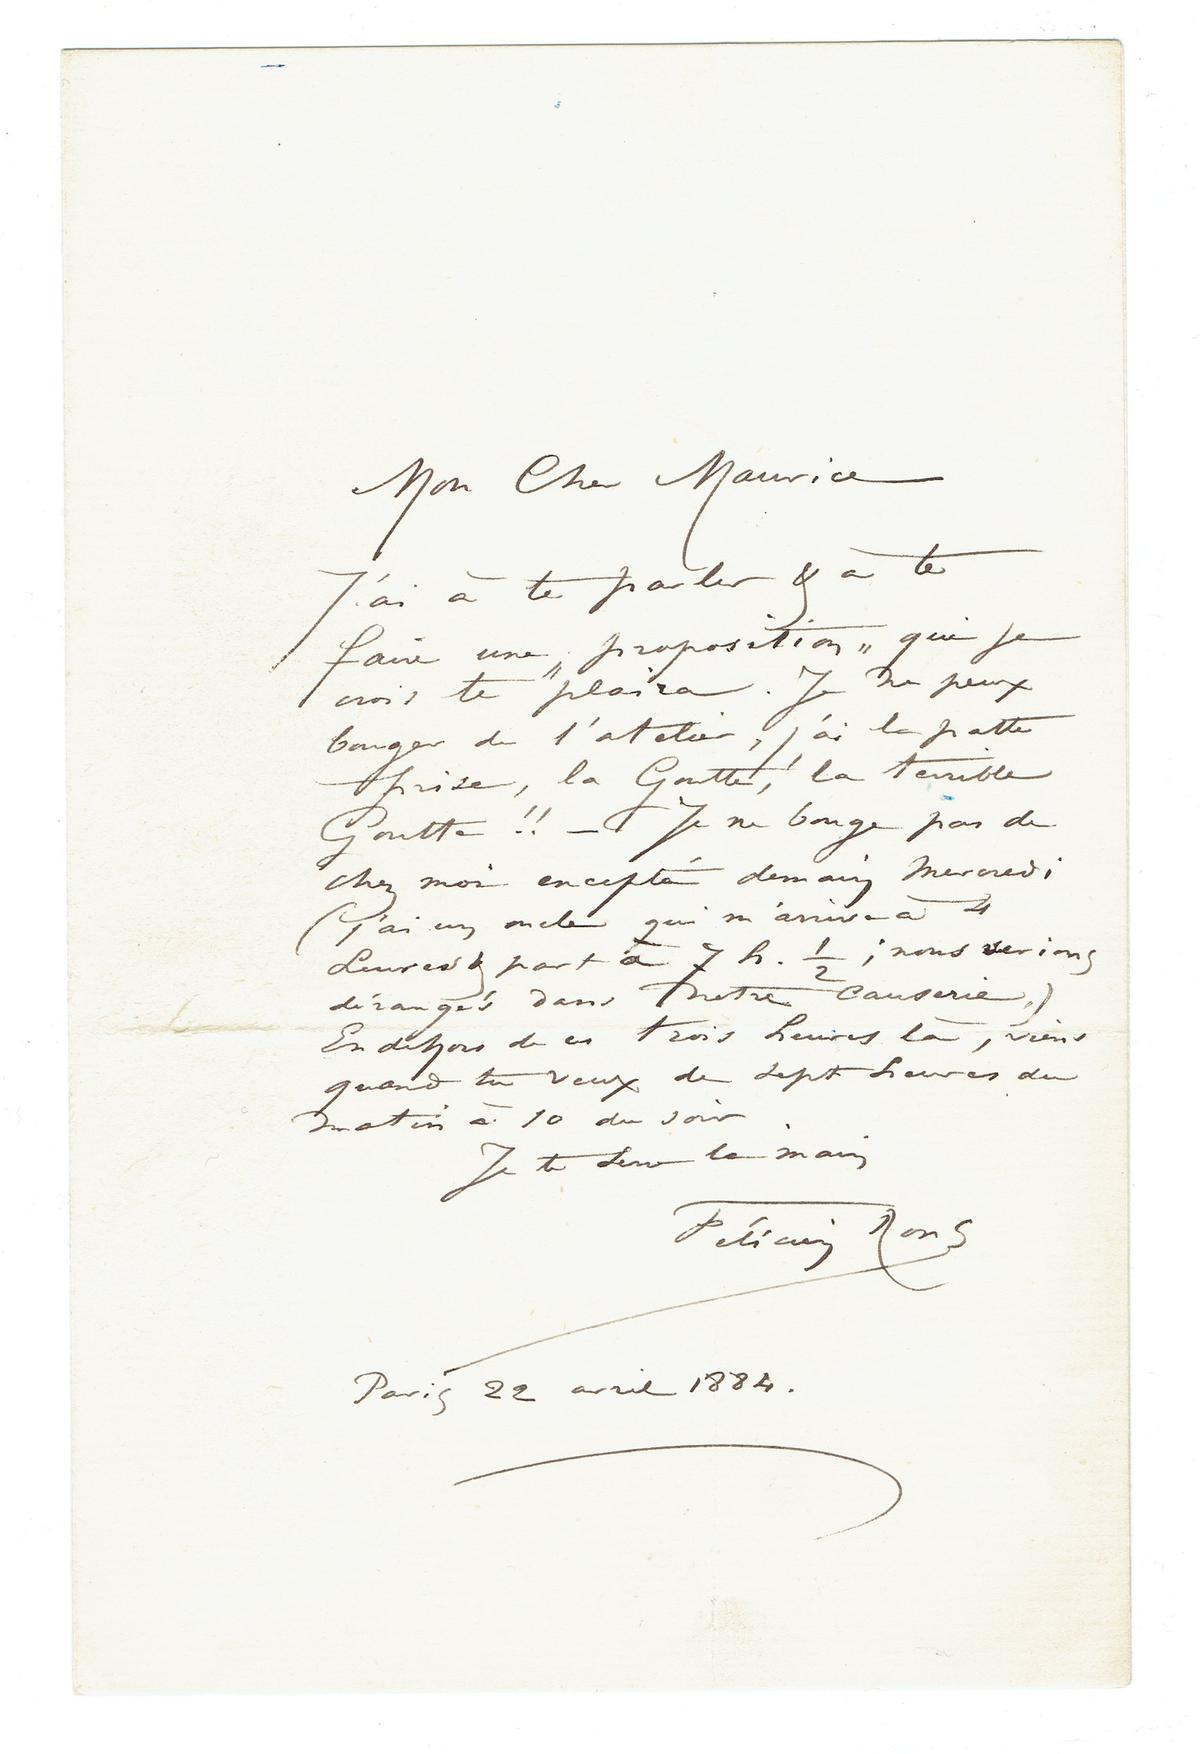 Mon Cher Maurice
J'ai à te parler & à te
faire une „proposition„ qui je
crois te plaira. Je ne peux
bouger de l'atelier, j'ai la patte
prise, la Goutte, la terrible
Goutte !! — Je ne bouge pas de
chez moi excepté demain Mercredi
(j'ai un oncle qui m'arrive à 4
heures & part à 7 h. 1/2 ; nous serions
dérangés dans notre causerie.)
En dehors de ces trois heures là, viens
quand tu veux de sept heures du
matin à 10 du soir
Je te serre la main
Félicien Rops
Paris 22 avril 1884.